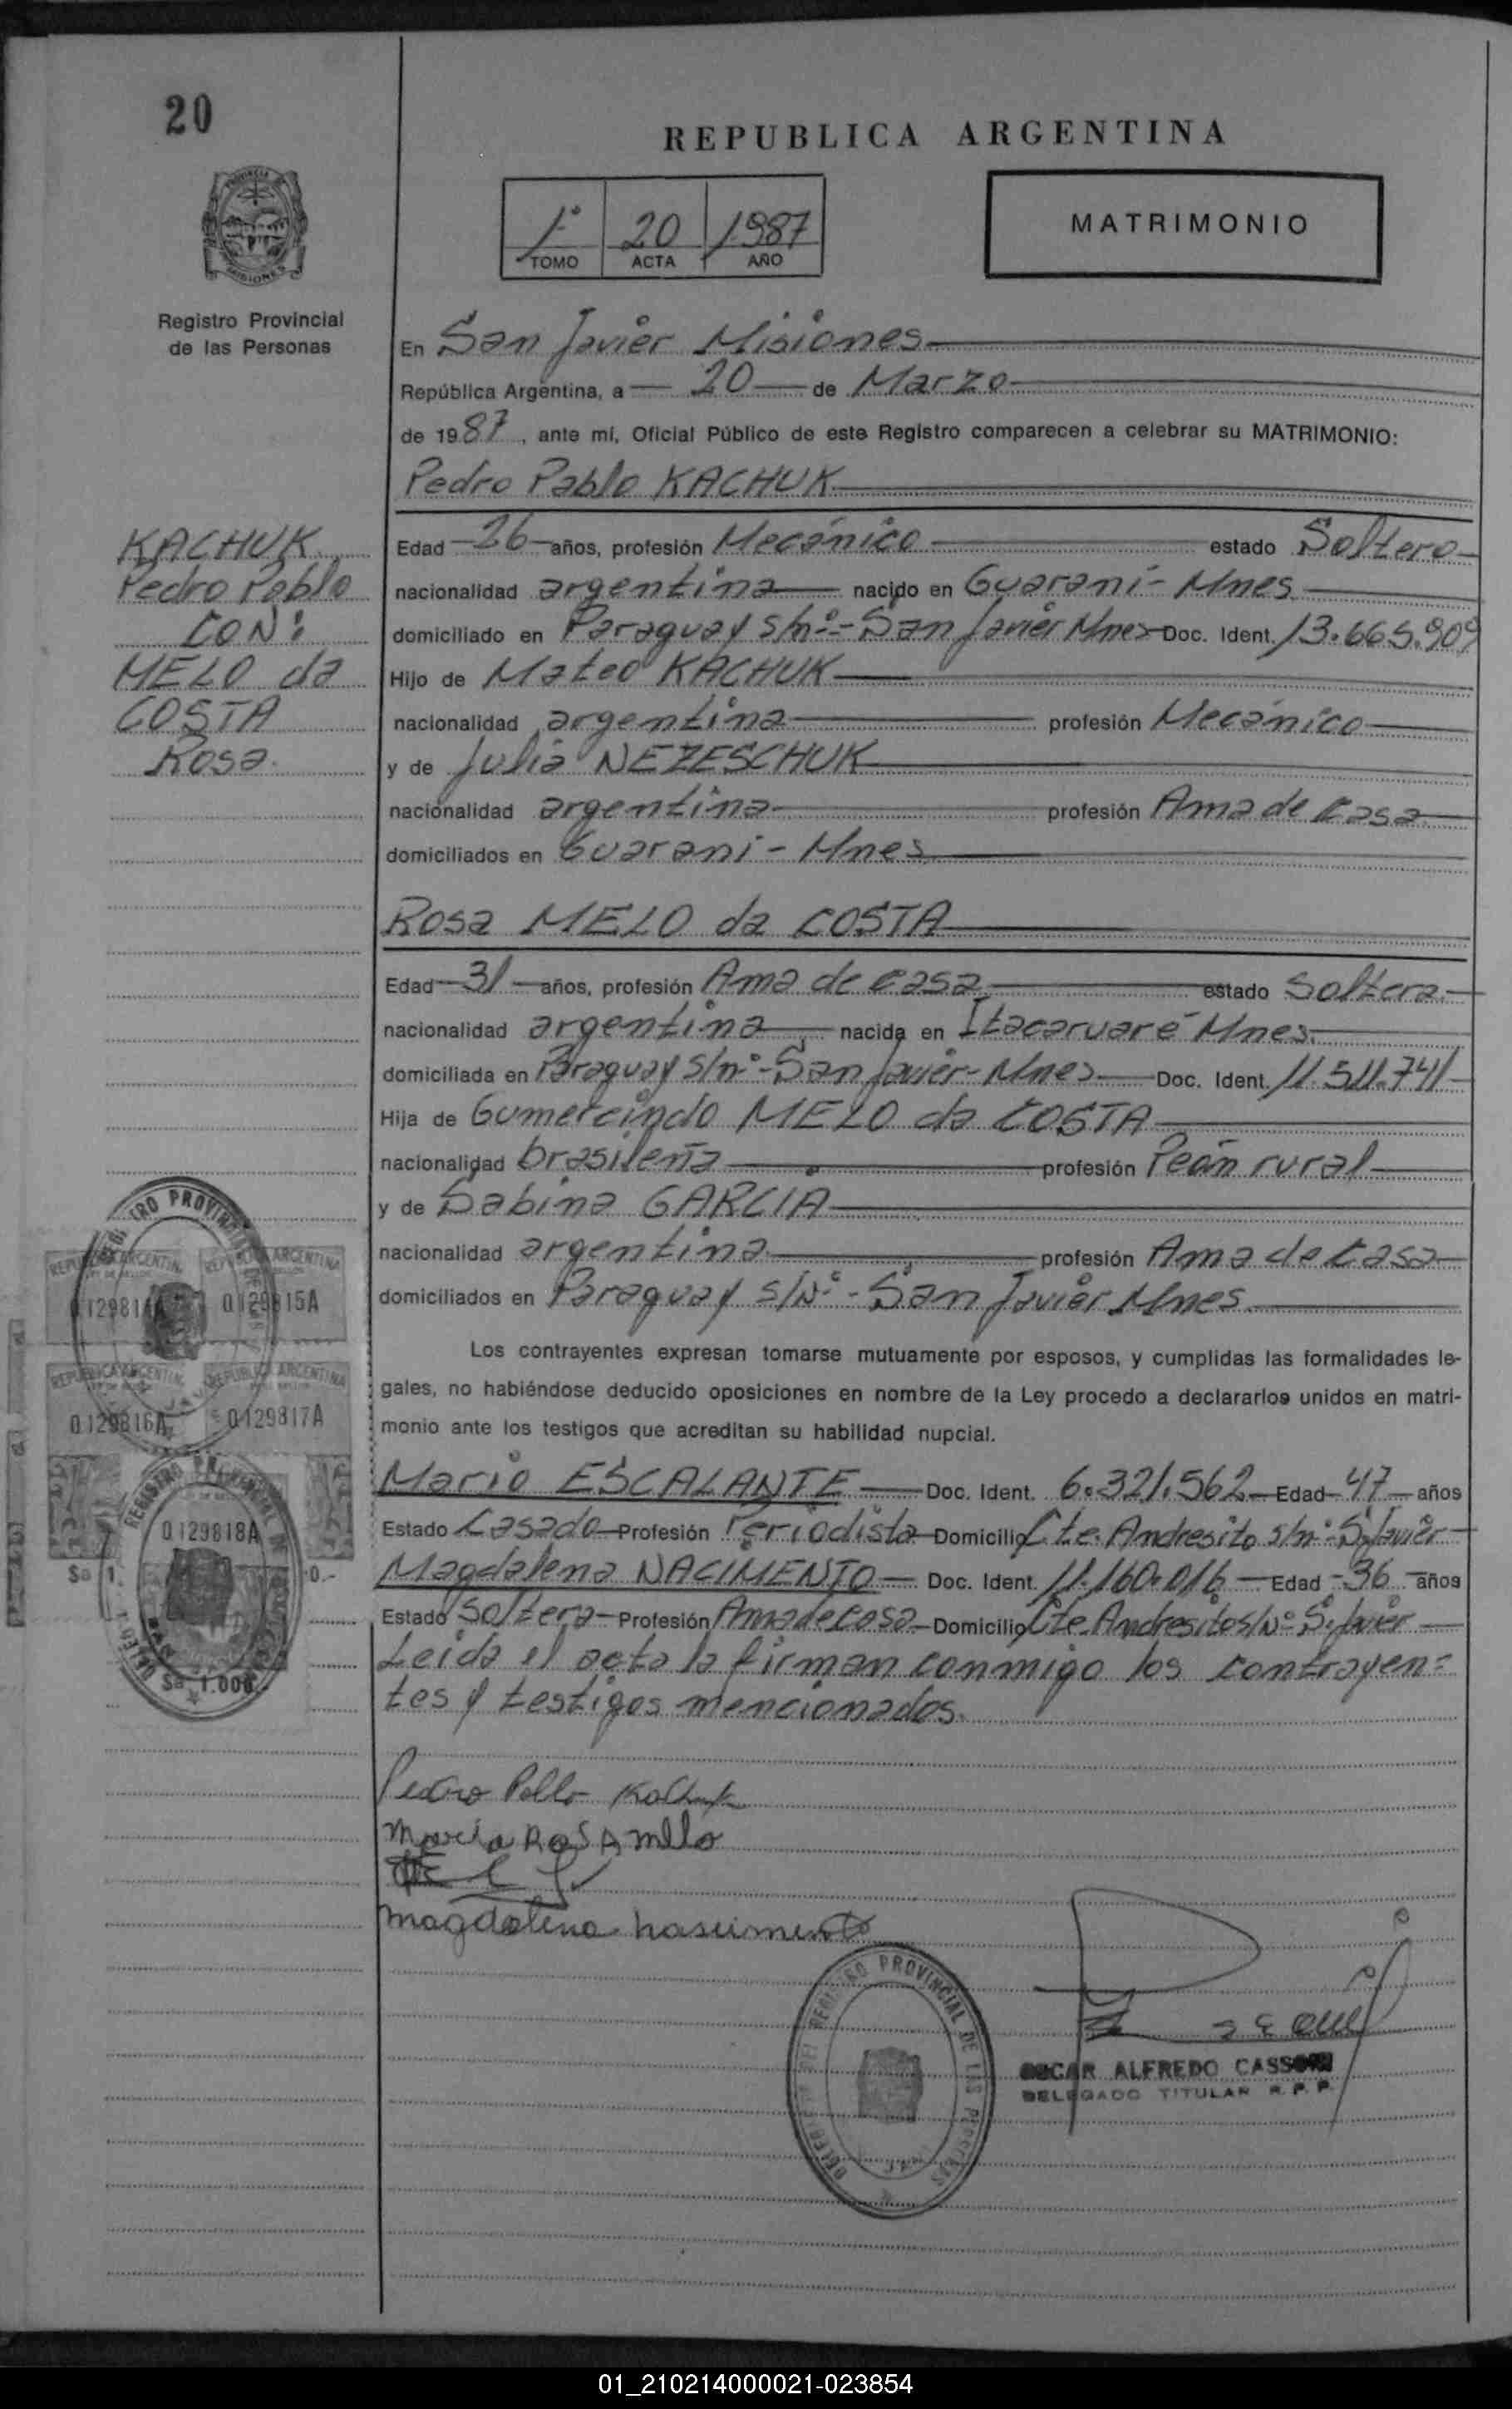 20
REPUBLICA ARGENTINA
1º 20 1987
TOMO ACTA AÑO
MATRIMONIO
Registro Provincial
de las Personas
En San Javier Misiones
República Argentina, a 20 de Marzo
de 1987, ante mí, Oficial Público de este Registro comparecen a celebrar su MATRIMONIO:
Pedro Pablo KACHUK
KACHUK
Pedro Pablo
CON:
MELO da
COSTA
Rosa.
Edad 26 años, profesión Mecánico estado Soltero
nacionalidad argentina nacido en Guaraní - Mnes
domiciliado en Paraguay s/nº - San Javier Mnes Doc. Ident. 13.665.909
Hijo de Mateo KACHUK
nacionalidad argentina profesión Mecánico
y de Julia NEZESCHUK
nacionalidad argentina profesión Ama de casa
domiciliados en Guaraní - Mnes
Rosa MELO da COSTA
Edad 31 años, profesión Ama de casa estado Soltera
nacionalidad argentina nacida en Itacaruaré Mnes
domiciliada en Paraguay s/nº - San Javier - Mnes Doc. Ident. 11.511.741
Hija de Gumercindo MELO da COSTA
nacionalidad brasileña profesión Peón rural
y de Sabina GARCIA
nacionalidad argentina profesión Ama de casa
domiciliados en Paraguay s/Nº - San Javier Mnes
Los contrayentes expresan tomarse mutuamente por esposos, y cumplidas las formalidades le-
gales, no habiéndose deducido oposiciones en nombre de la Ley procedo a declararlos unidos en matri-
monio ante los testigos que acreditan su habilidad nupcial.
Mario ESCALANTE Doc. Ident. 6.321.562 Edad 47 años
Estado Casado Profesión Periodista Domicilio Cte. Andresito s/nº S. Javier
Magdalena NACIMENTO Doc. Ident. 11.160.016 Edad 36 años
Estado Soltera Profesión Ama de casa Domicilio Cte Andresito s/Nº S. Javier
Leida el acta la firman conmigo los contrayen=
tes y testigos mencionados.
REPUBLICA ARGENTINA REPUBLICA ARGENTINA
0129815A
REPUBLICA ARGENTINA REPUBLICA ARGENTINA
0129816A 0129817A
0129818A
$a 1.000
Pedro Pablo Kachuk
Maria Rosa mello
magdalena nascimento
REGISTRO PROVINCIAL DE LAS PERSONAS
OSCAR ALFREDO CASSONI
DELEGADO TITULAR R.P.P.
01_210214000021-023854